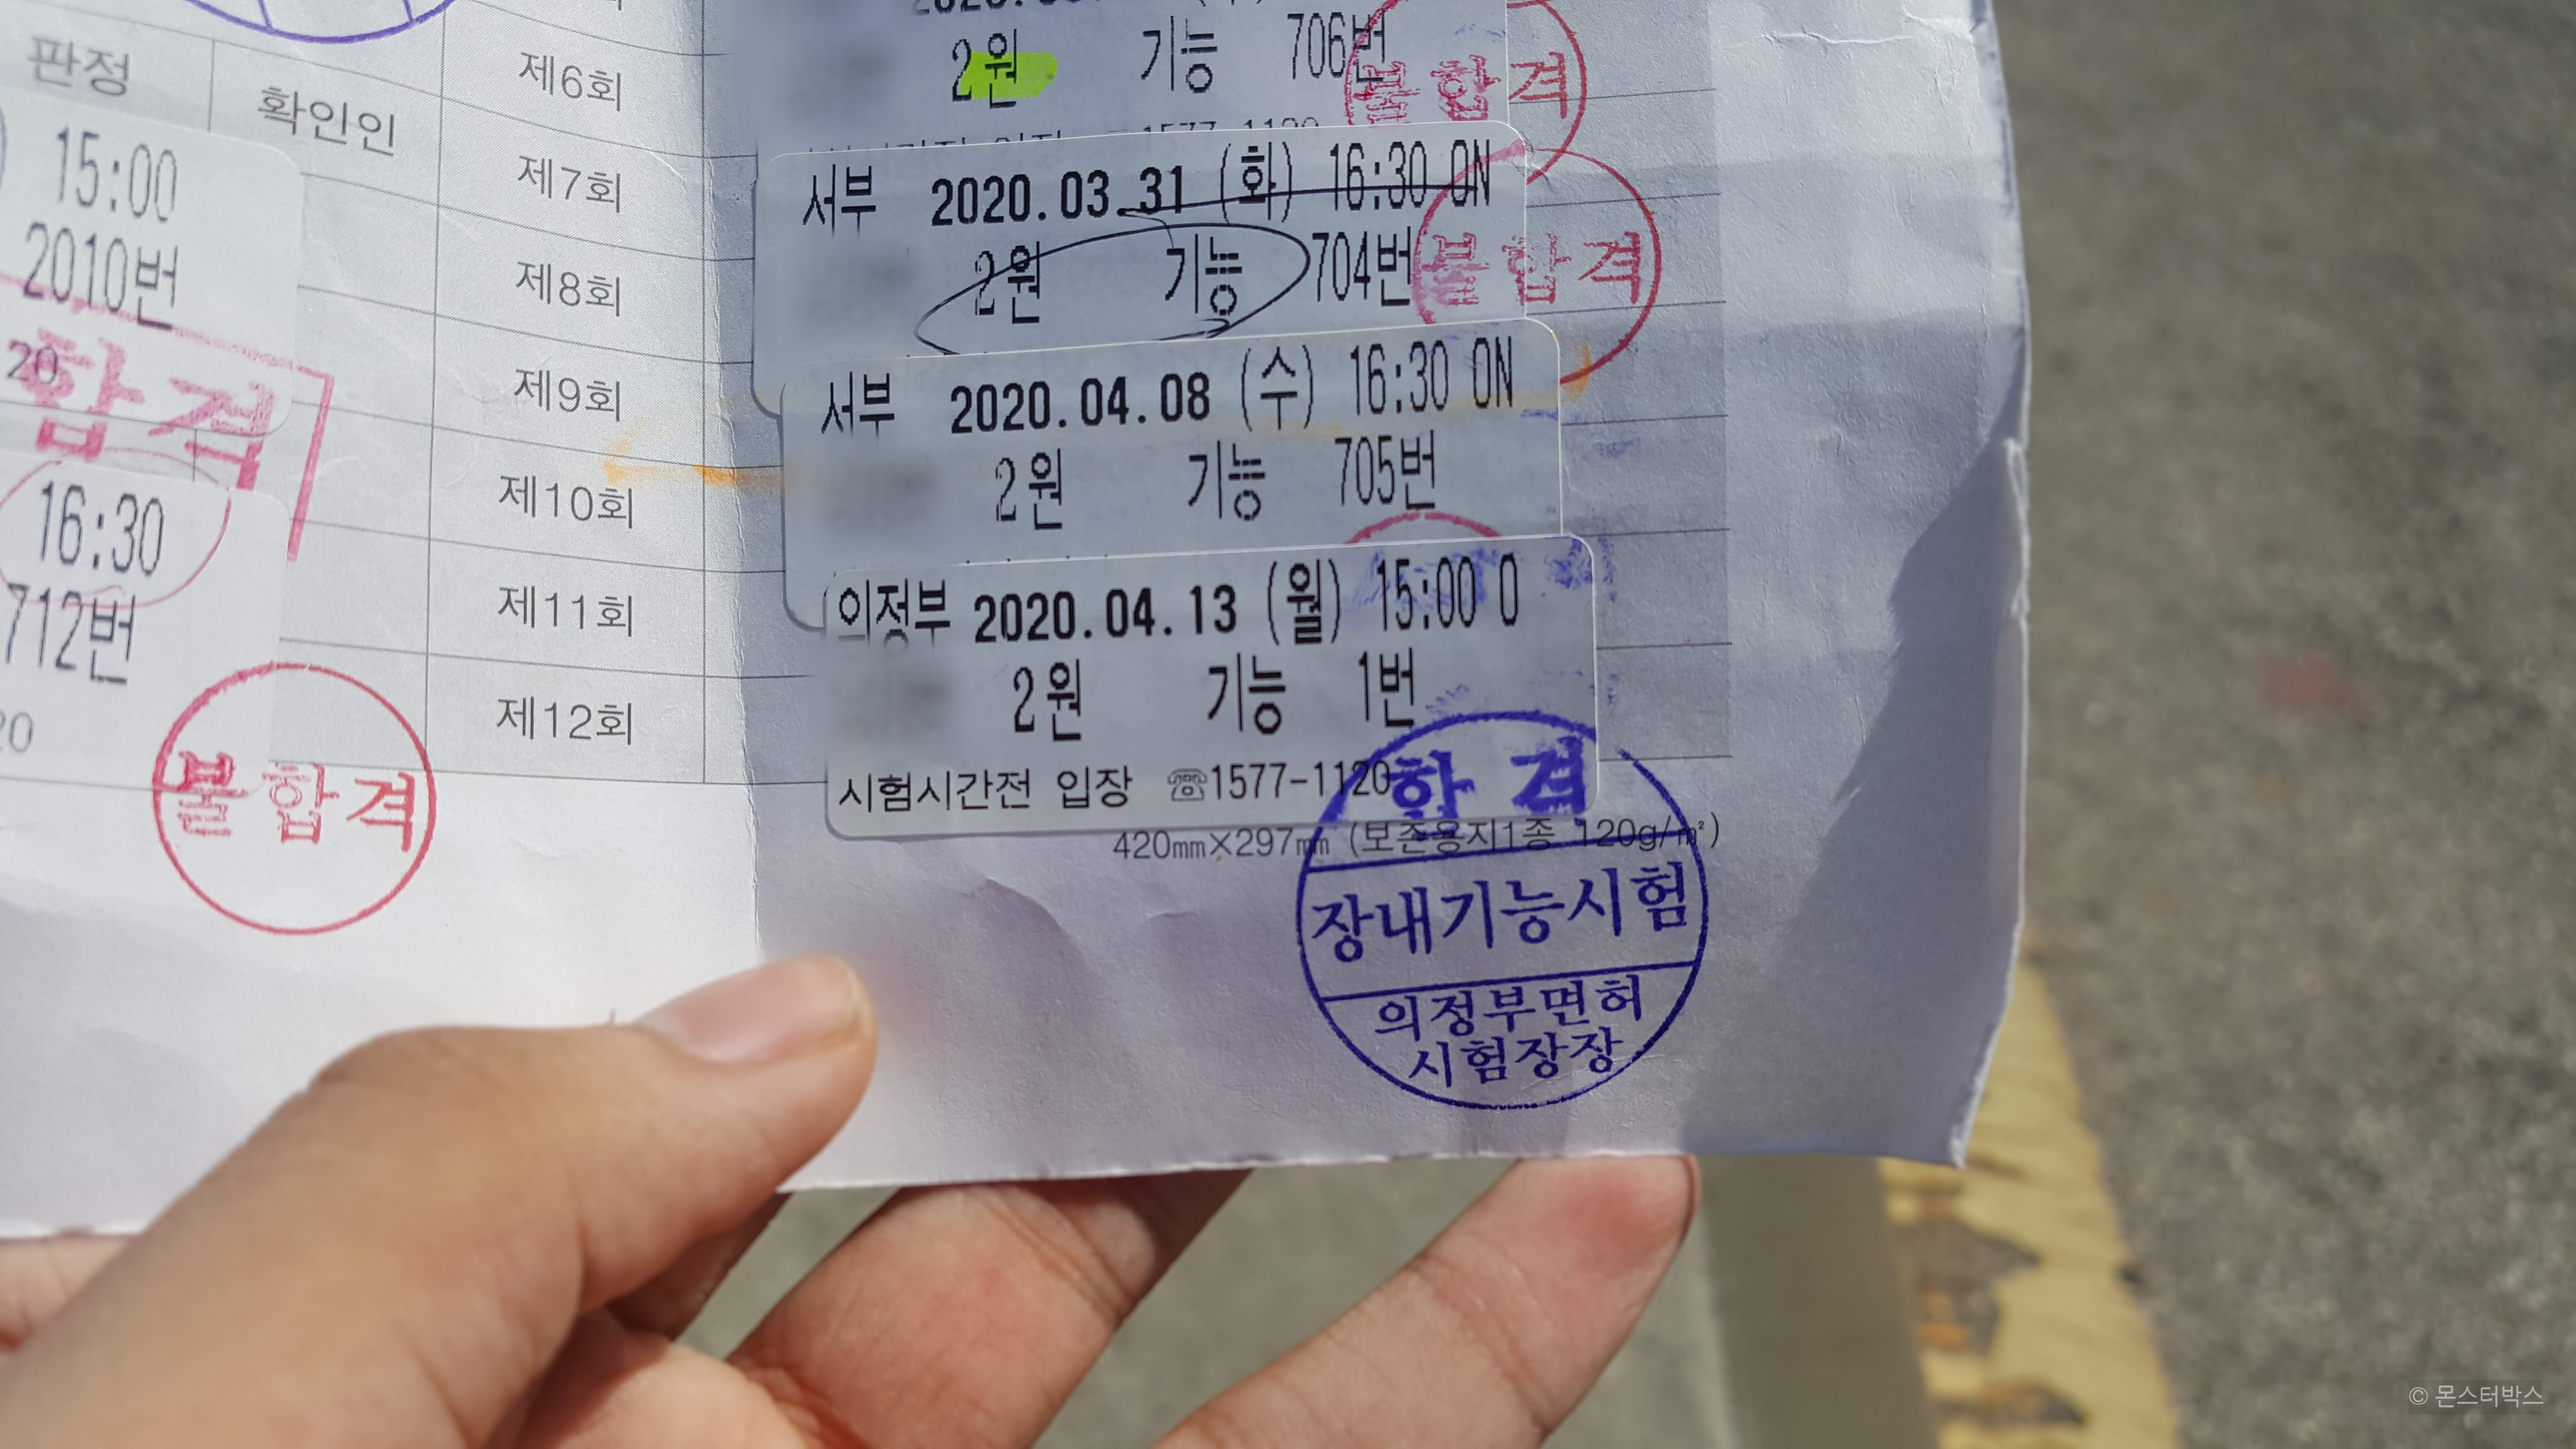 판정
확인인
15:00
2010번
20
합격
16:30
712번
20
불합격
제6회
제7회
제8회
제9회
제10회
제11회
제12회
2원 기능 706번
불합격
서부 2020.03.31 (화) 16:30 ON
2원 기능 704번
불합격
서부 2020.04.08 (수) 16:30 ON
2원 기능 705번
의정부 2020.04.13 (월) 15:00 O
2원 기능 1번
시험시간전 입장 ☏1577-1120
합격
420㎜×297㎜ (보존용지1종 120g/㎡)
장내기능시험
의정부면허
시험장장
© 몬스터박스